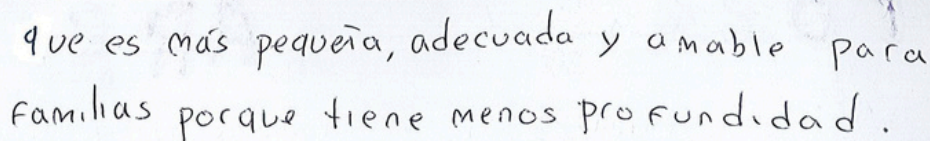 que es más pequeña, adecuada y amable para
familias porque tiene menos profundidad.